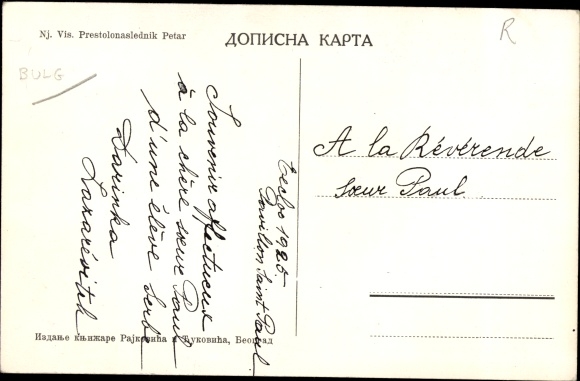 Nj. Vis. Prestolonaslednik Petar
ДОПИСНА КАРТА
R
BULG
Souvenir affectueux
à la chère sœur Paul
d'une élève Serbe
Darinka
Lazarévitch
1925
Pavillon Saint Paul
A la Révérende
sœur Paul
Издање књижаре Рајковића и Ћуковића, Београд